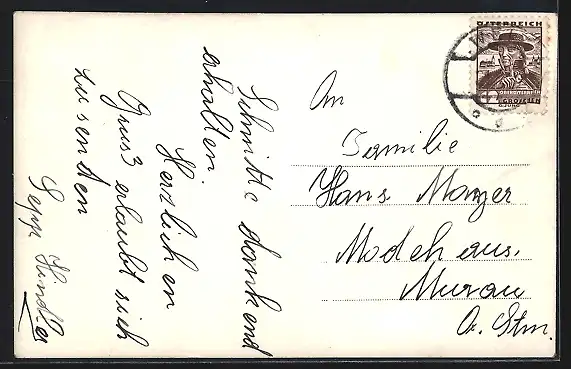 Schnitte dankend
erhalten
Herzlichen
Gruss erlaubt sich
zu senden
Sepp
An
Familie
Hans Mayer
Modehaus.
Murau
a. Stm.
ÖSTERREICH
OBERÖSTERREICH
12 GROSCHEN